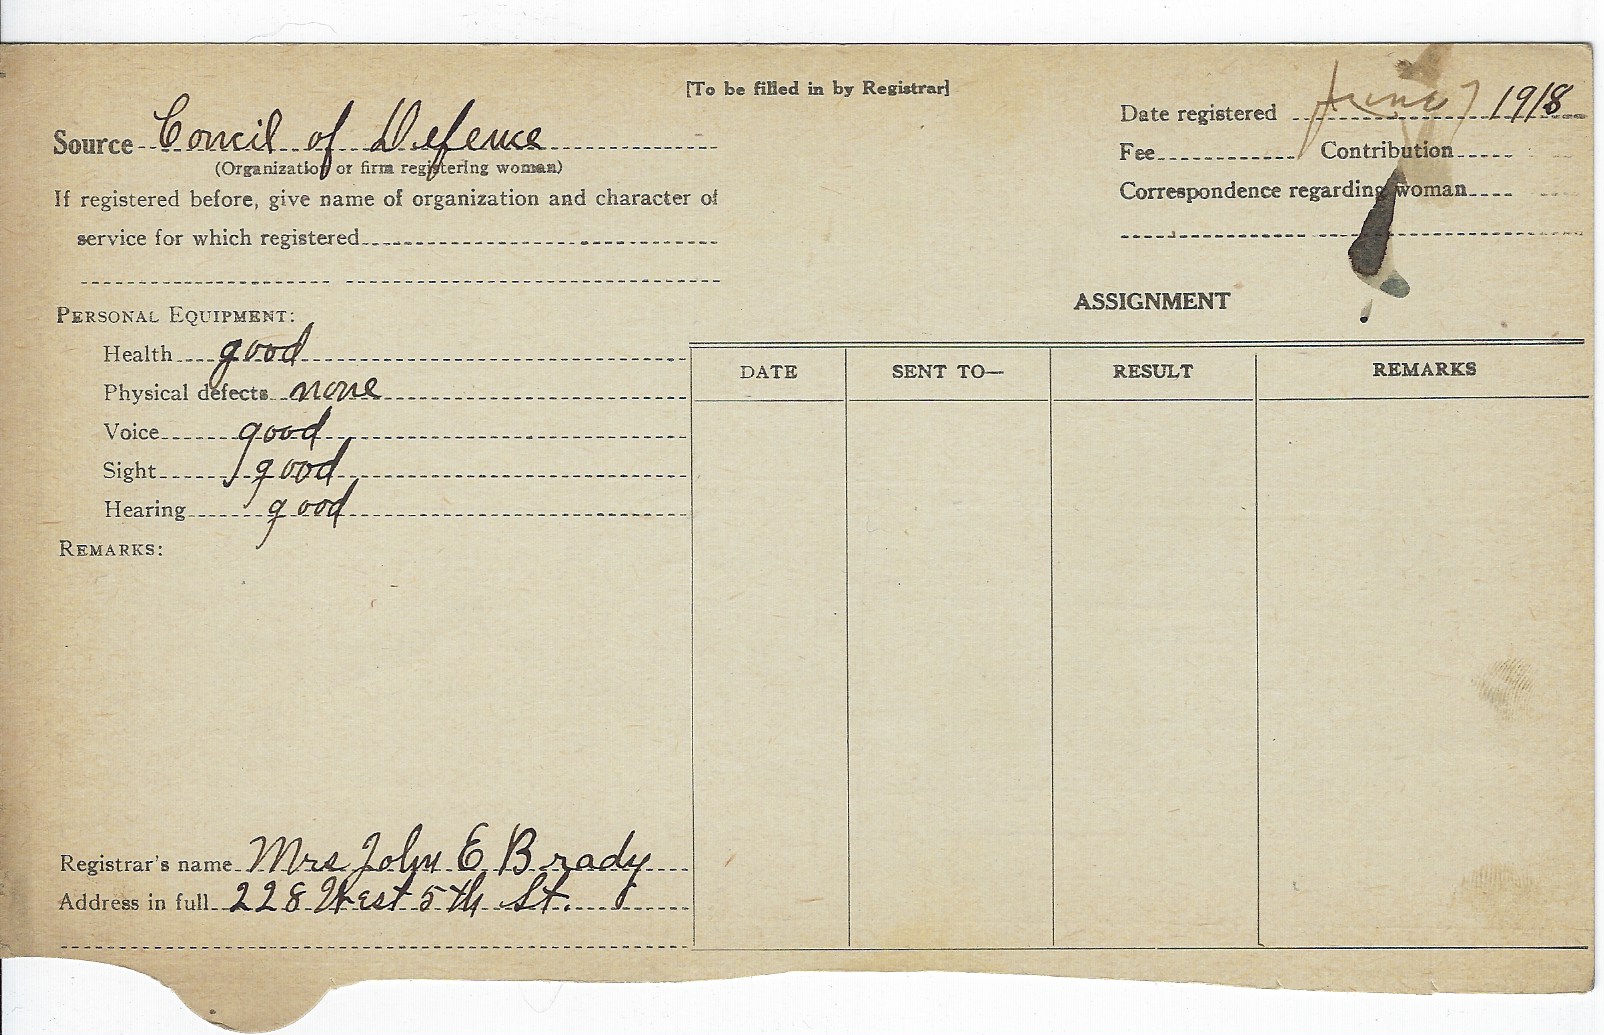 [To be filled in by Registrar]
Source Concil of Defence
(Organization or firm registering woman)
If registered before, give name of organization and character of
service for which registered
Date registered June 7 1918
Fee Contribution
Correspondence regarding woman
PERSONAL EQUIPMENT:
Health good
Physical defects none
Voice good
Sight good
Hearing good
REMARKS:
ASSIGNMENT
DATE SENT TO— RESULT REMARKS
Registrar's name Mrs John E Brady
Address in full 228 West 5th St.